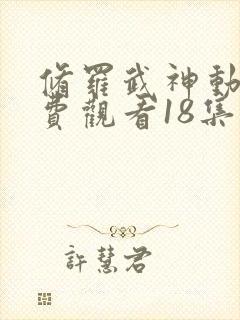 脩羅武神動
費觀看18集
許慧君